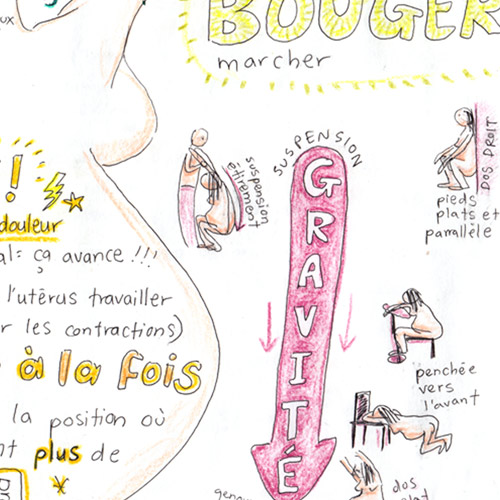 ux
BOUGER
marcher
!
douleur
al= ça avance !!!
l'utérus travailler
r les contractions)
à la fois
la position où
nt plus de
suspension
étirement
SUSPENSION
GRAVITÉ
DOS DROIT
pieds
plats et
parrallèle
penchée
vers
l'avant
genou
dos
plat